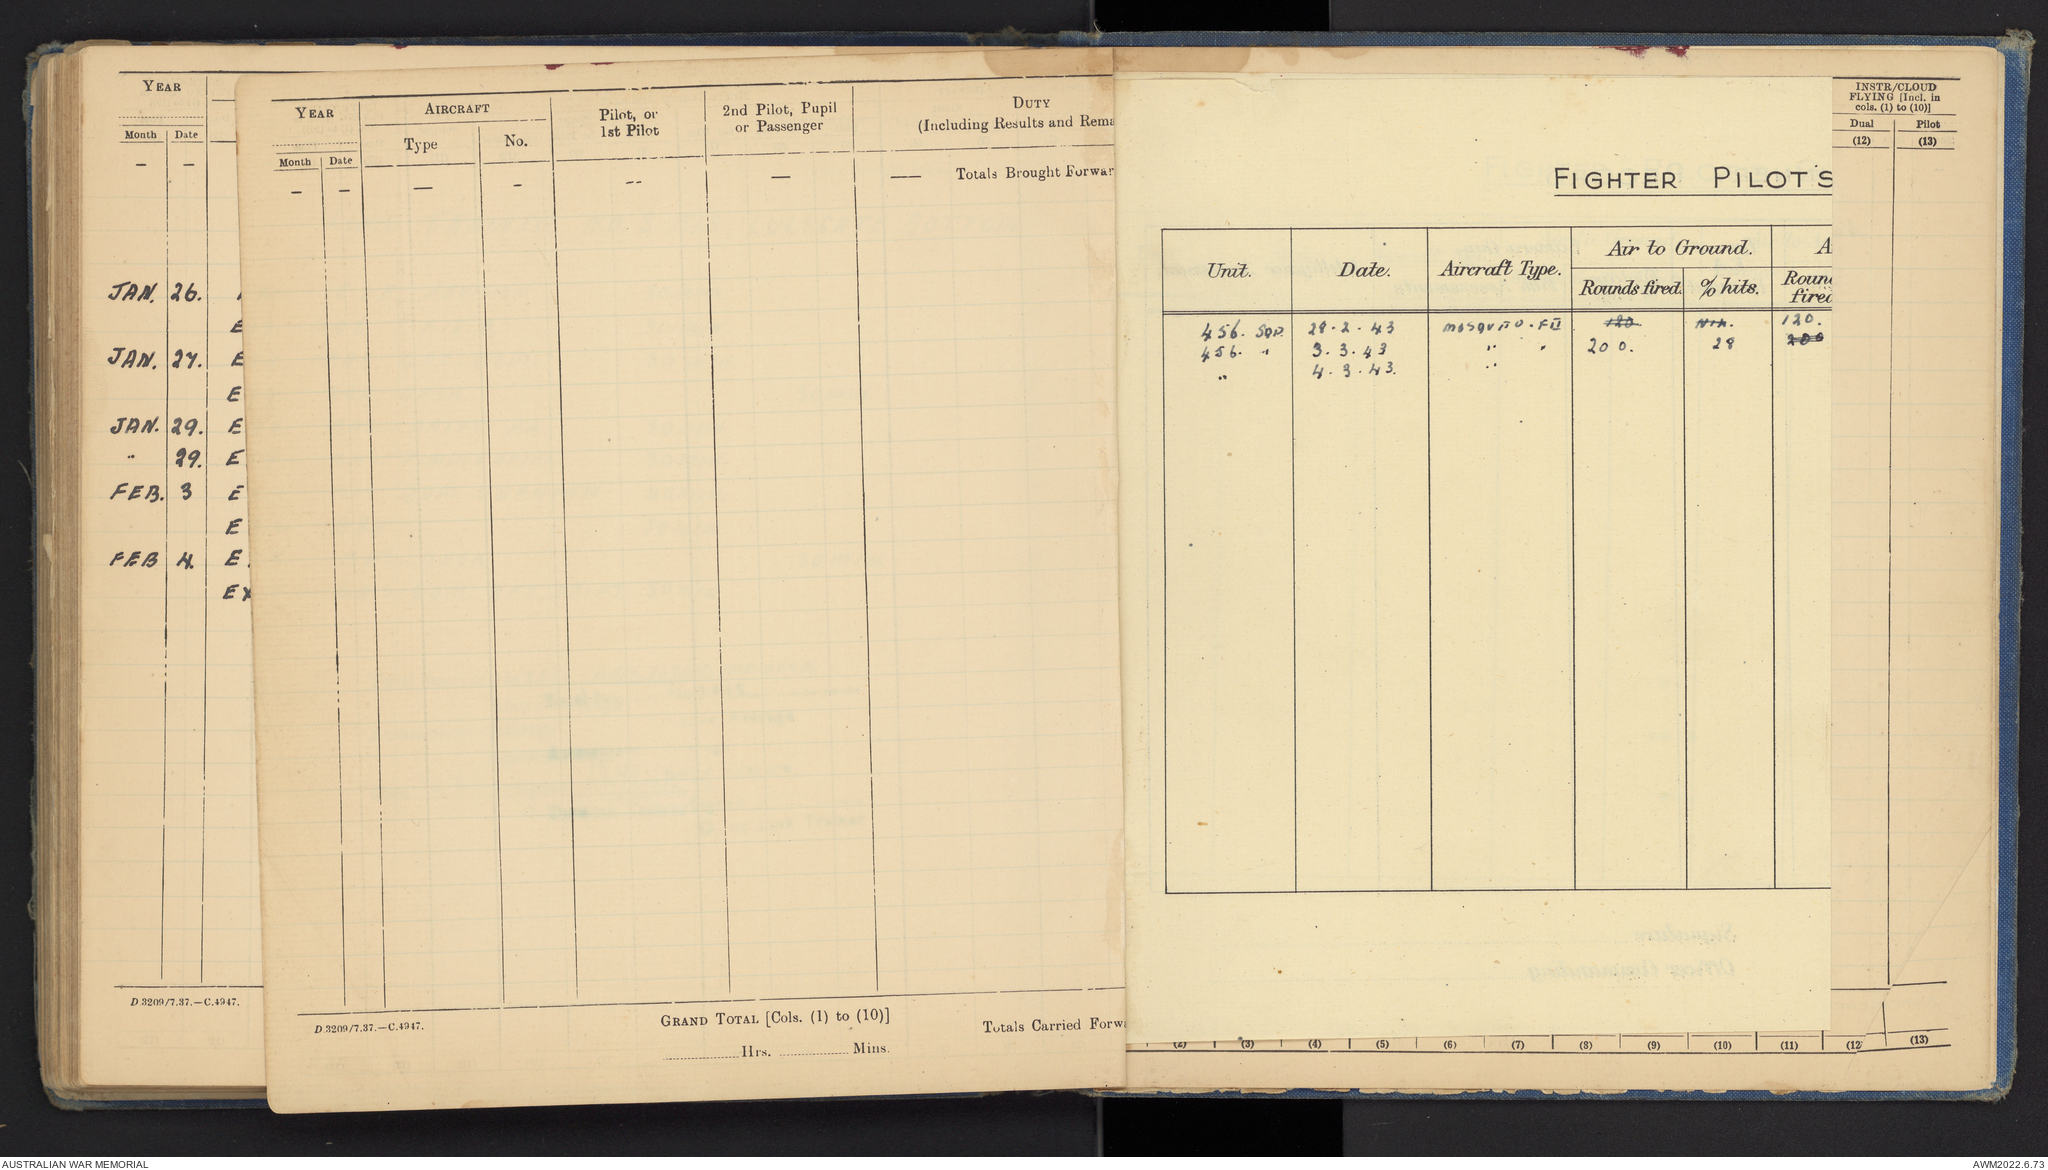 YEAR
Month Date
— —
JAN. 26.
E
JAN. 27. E
E
JAN. 29. E
" 29. E
FEB. 3 E
E
FEB 4. E.
EX
D.3209/7.37.—C.4947.
YEAR AIRCRAFT Pilot, or 1st Pilot 2nd Pilot, Pupil or Passenger DUTY
(Including Results and Rema
Month Date Type No.
— — — - -- — —— Totals Brought Forwar
D.3209/7.37.—C.4947.
GRAND TOTAL [Cols. (1) to (10)]
Hrs. Mins.
Totals Carried Forwa
FIGHTER PILOT'S
Unit. Date. Aircraft Type. Air to Ground. A
Rounds fired. % hits. Roun
fired
456. SQD. 28.2.43 MOSQUITO. FII 120 NIL. 120.
456. " 3.3.43 " " 200. 28 200
" 4.3.43. "
INSTR/CLOUD
FLYING [Incl. in
cols. (1) to (10)]
Dual Pilot
(12) (13)
(2) (3) (4) (5) (6) (7) (8) (9) (10) (11) (12 (13)
AUSTRALIAN WAR MEMORIAL
AWM2022.6.73